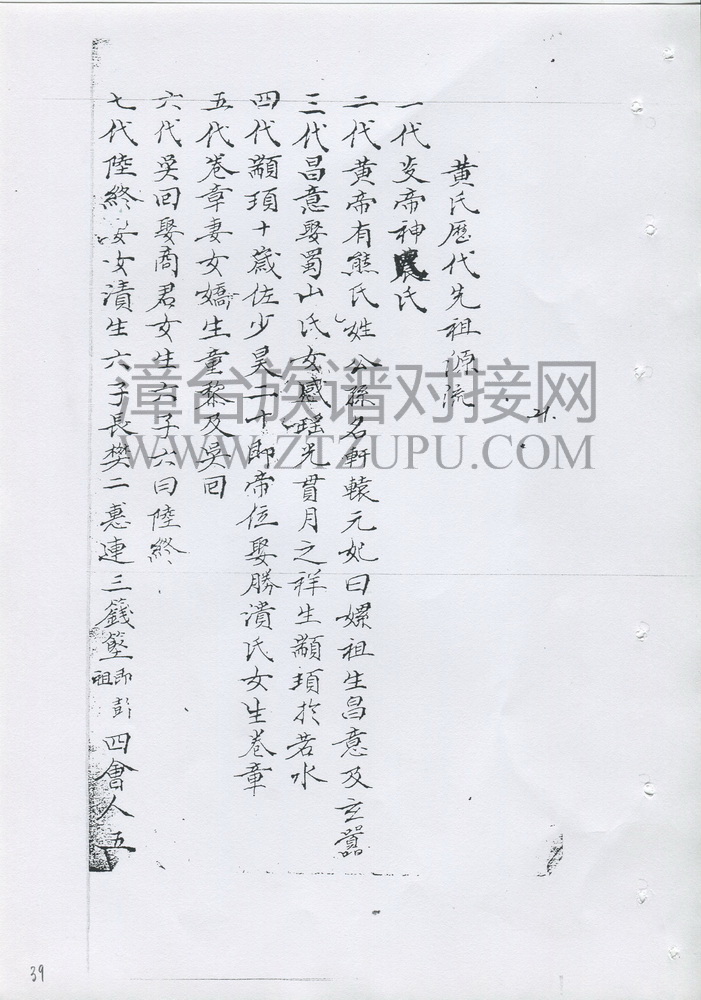 黃氏歷代先祖源流
一代炎帝神農氏
二代黃帝有熊氏姓公孫名軒轅元妃曰嫘祖生昌意及玄囂
三代昌意娶蜀山氏女感瑤光貫月之祥生顓頊於若水
四代顓頊十歲佐少昊二十即帝位娶勝潰氏女生卷章
五代卷章妻女嬌生童黎及吳回
六代吳回娶商君女生六子六曰陸終
七代陸終女漬生六子長樊二惠連三籛堅即彭祖四會人五
21.
漳台族谱对接网
WWW.ZTZUPU.COM
39